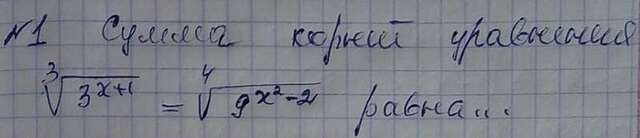 №1 Сумма корней уравнения
$\sqrt[3]{3^{x+1}} = \sqrt[4]{9^{x^2-2}}$ равна...